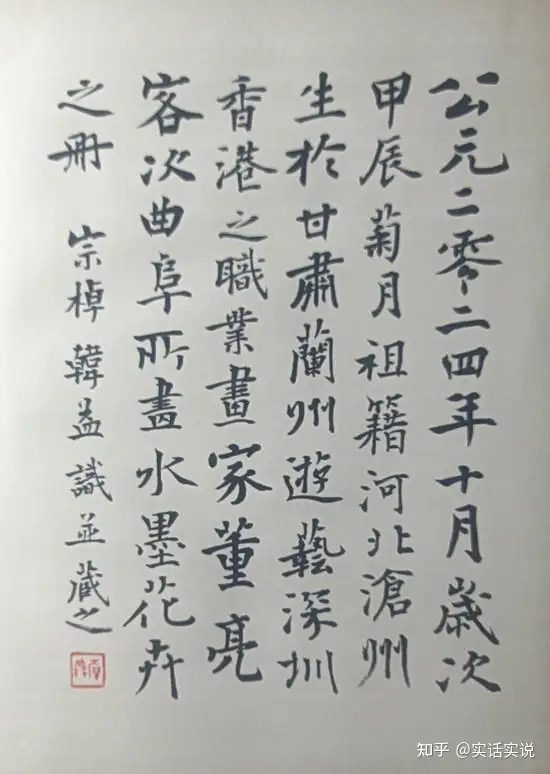 公元二零二四年十月歲次
甲辰菊月祖籍河北滄州
生於甘肅蘭州遊藝深圳
香港之職業畫家董亮
客次曲阜所畫水墨花卉
之冊
宗棹韓益識並藏之
知乎 @实话实说